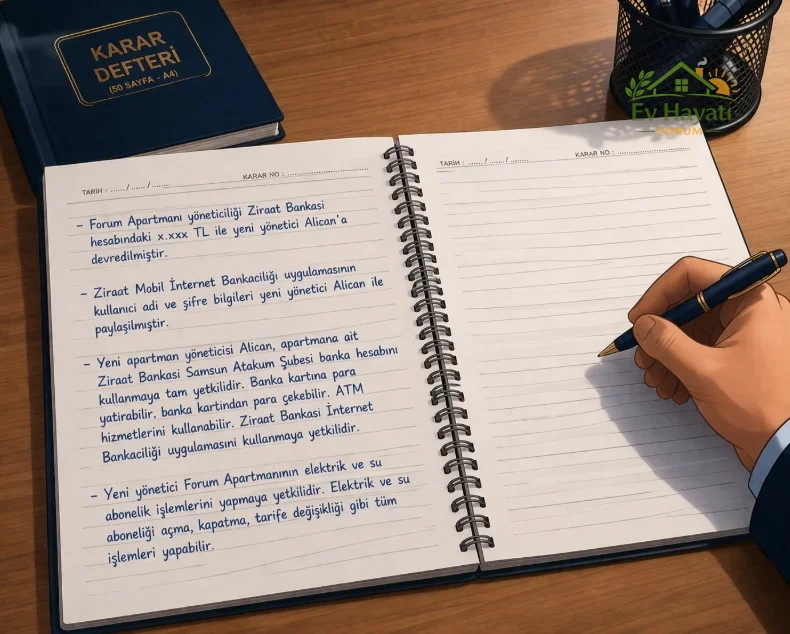 KARAR
DEFTERİ
(50 SAYFA - A4)
Ev Hayatı
FORUM
TARİH : ...... / ...... / .......
KARAR NO : ..............................
- Forum Apartmanı yöneticiliği Ziraat Bankası
hesabındaki x.xxx TL ile yeni yönetici Alican'a
devredilmiştir.
- Ziraat Mobil İnternet Bankaciliği uygulamasının
kullanici adi ve şifre bilgileri yeni yönetici Alican ile
paylaşilmıştir.
- Yeni apartman yöneticisi Alican, apartmana ait
Ziraat Bankasi Samsun Atakum Şubesi banka hesabını
kullanmaya tam yetkilidir. Banka kartına para
yatirabilir, banka kartindan para çekebilir. ATM
hizmetlerini kullanabilir. Ziraat Bankasi İnternet
Bankaciliği uygulamasini kullanmaya yetkilidir.
- Yeni yönetici Forum Apartmanının elektrik ve su
abonelik işlemlerini yapmaya yetkilidir. Elektrik ve su
aboneliği açma, kapatma, tarife değişikliği gibi tüm
işlemleri yapabilir.
TARİH : ...... / ...... / .......
KARAR NO : ..............................